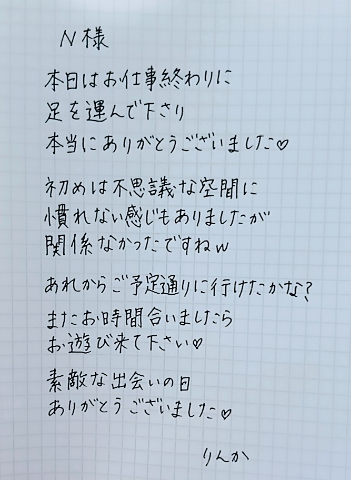 N様
本日はお仕事終わりに
足を運んで下さり
本当にありがとうございました♡
初めは不思議な空間に
慣れない感じもありましたが
関係なかったですねw
あれからご予定通りに行けたかな?
またお時間合いましたら
お遊び来て下さい♡
素敵な出会いの日
ありがとうございました♡
りんか